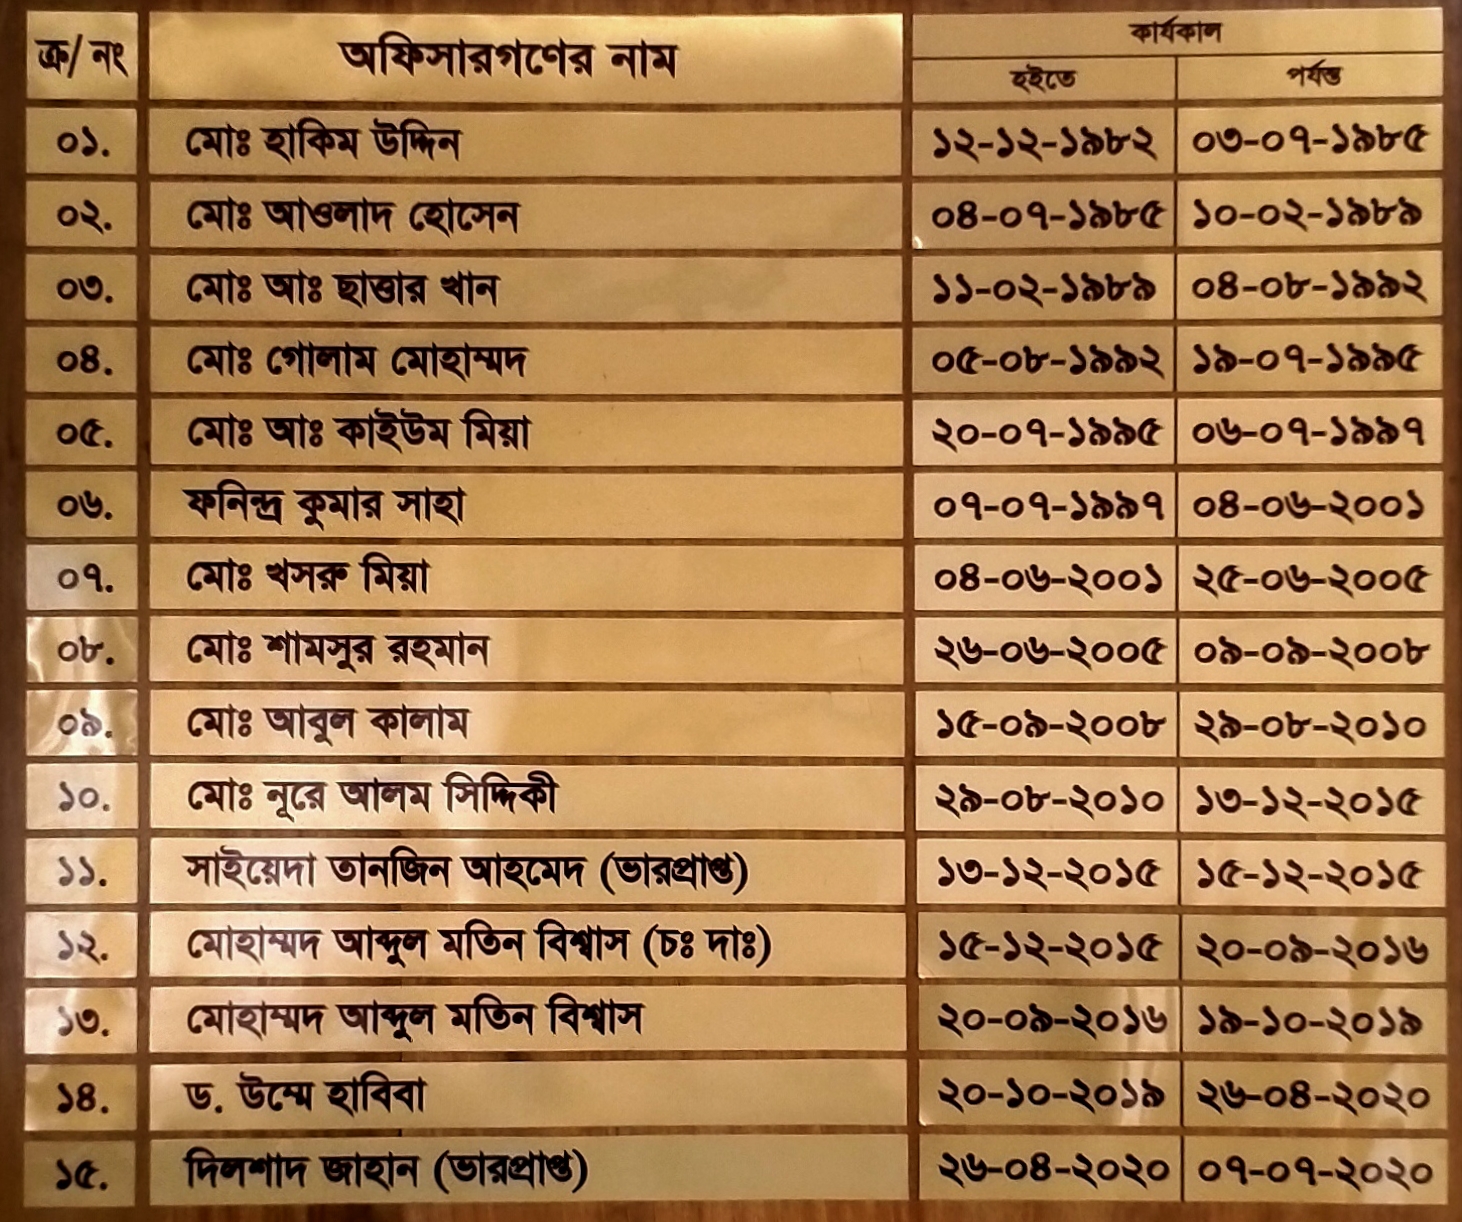 ক্র/ নং অফিসারগণের নাম কার্যকাল
হইতে পর্যন্ত
০১. মোঃ হাকিম উদ্দিন ১২-১২-১৯৮২ ০৩-০৭-১৯৮৫
০২. মোঃ আওলাদ হোসেন ০৪-০৭-১৯৮৫ ১০-০২-১৯৮৯
০৩. মোঃ আঃ ছাত্তার খান ১১-০২-১৯৮৯ ০৪-০৮-১৯৯২
০৪. মোঃ গোলাম মোহাম্মদ ০৫-০৮-১৯৯২ ১৯-০৭-১৯৯৫
০৫. মোঃ আঃ কাইউম মিয়া ২০-০৭-১৯৯৫ ০৬-০৭-১৯৯৭
০৬. ফনিন্দ্র কুমার সাহা ০৭-০৭-১৯৯৭ ০৪-০৬-২০০১
০৭. মোঃ খসরু মিয়া ০৪-০৬-২০০১ ২৫-০৬-২০০৫
০৮. মোঃ শামসুর রহমান ২৬-০৬-২০০৫ ০৯-০৯-২০০৮
০৯. মোঃ আবুল কালাম ১৫-০৯-২০০৮ ২৯-০৮-২০১০
১০. মোঃ নূরে আলম সিদ্দিকী ২৯-০৮-২০১০ ১৩-১২-২০১৫
১১. সাইয়েদা তানজিন আহমেদ (ভারপ্রাপ্ত) ১৩-১২-২০১৫ ১৫-১২-২০১৫
১২. মোহাম্মদ আব্দুল মতিন বিশ্বাস (চঃ দাঃ) ১৫-১২-২০১৫ ২০-০৯-২০১৬
১৩. মোহাম্মদ আব্দুল মতিন বিশ্বাস ২০-০৯-২০১৬ ১৯-১০-২০১৯
১৪. ড. উম্মে হাবিবা ২০-১০-২০১৯ ২৬-০৪-২০২০
১৫. দিলশাদ জাহান (ভারপ্রাপ্ত) ২৬-০৪-২০২০ ০৭-০৭-২০২০